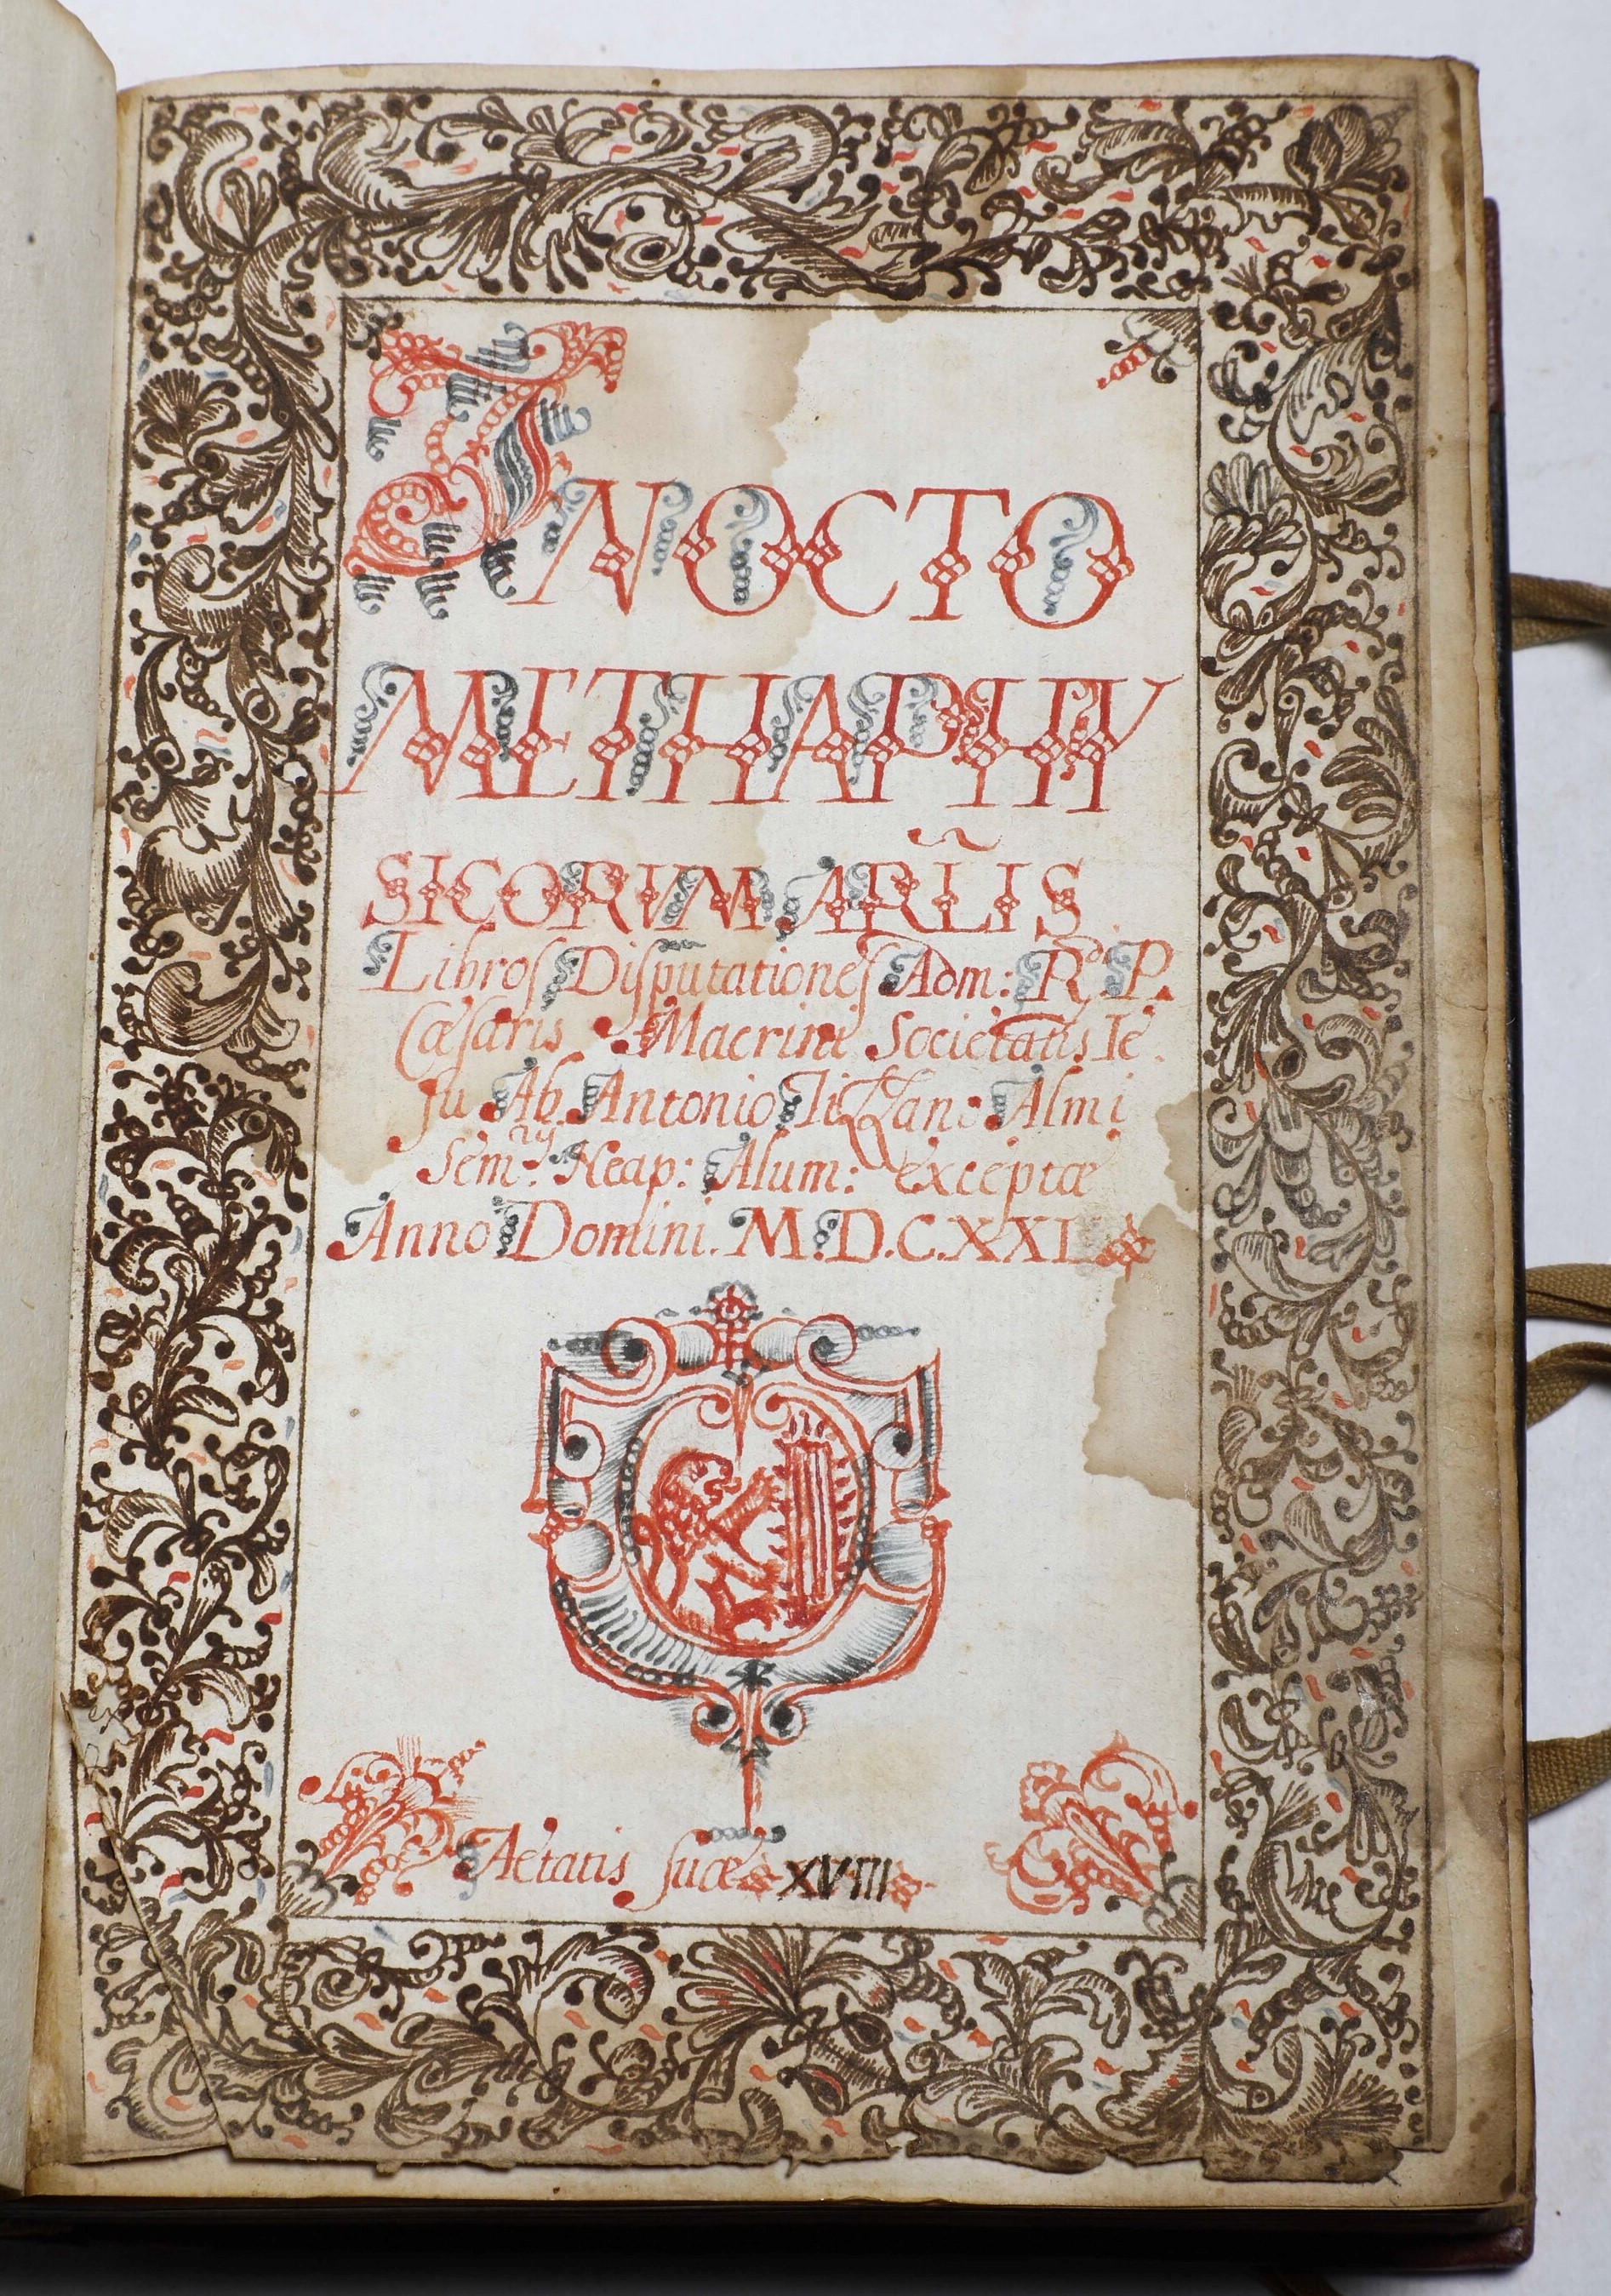 IN OCTO
METHAPHY
SICORVM ARL̃IS
Libros Disputationes Adm: Rdi P.
Cæsaris Macrini Societatis Ie
su Ab Antonio Tizzano Almi
Semrij Neap: Alum: exceptæ
Anno Domini. M.D.C.XXI
Aetatis suæ XVIII